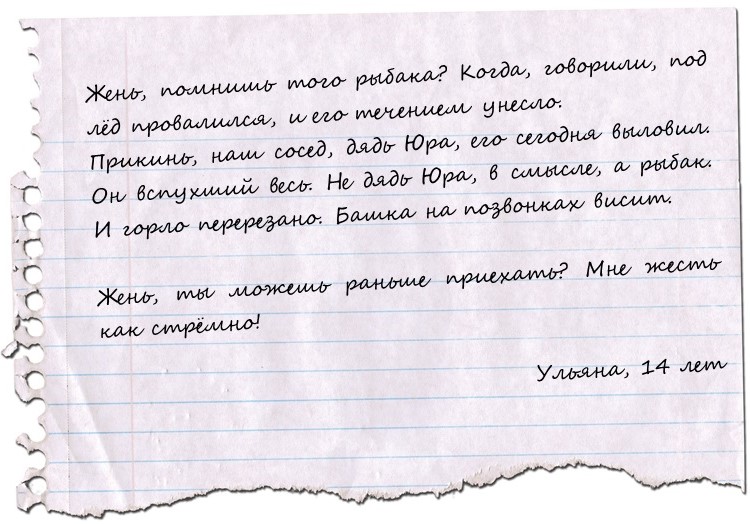 Жень, помнишь того рыбака? Когда, говорили, под
лёд провалился, и его течением унесло.
Прикинь, наш сосед, дядь Юра, его сегодня выловил.
Он вспухший весь. Не дядь Юра, в смысле, а рыбак.
И горло перерезано. Башка на позвонках висит.
Жень, ты можешь раньше приехать? Мне жесть
как стрёмно!
Ульяна, 14 лет